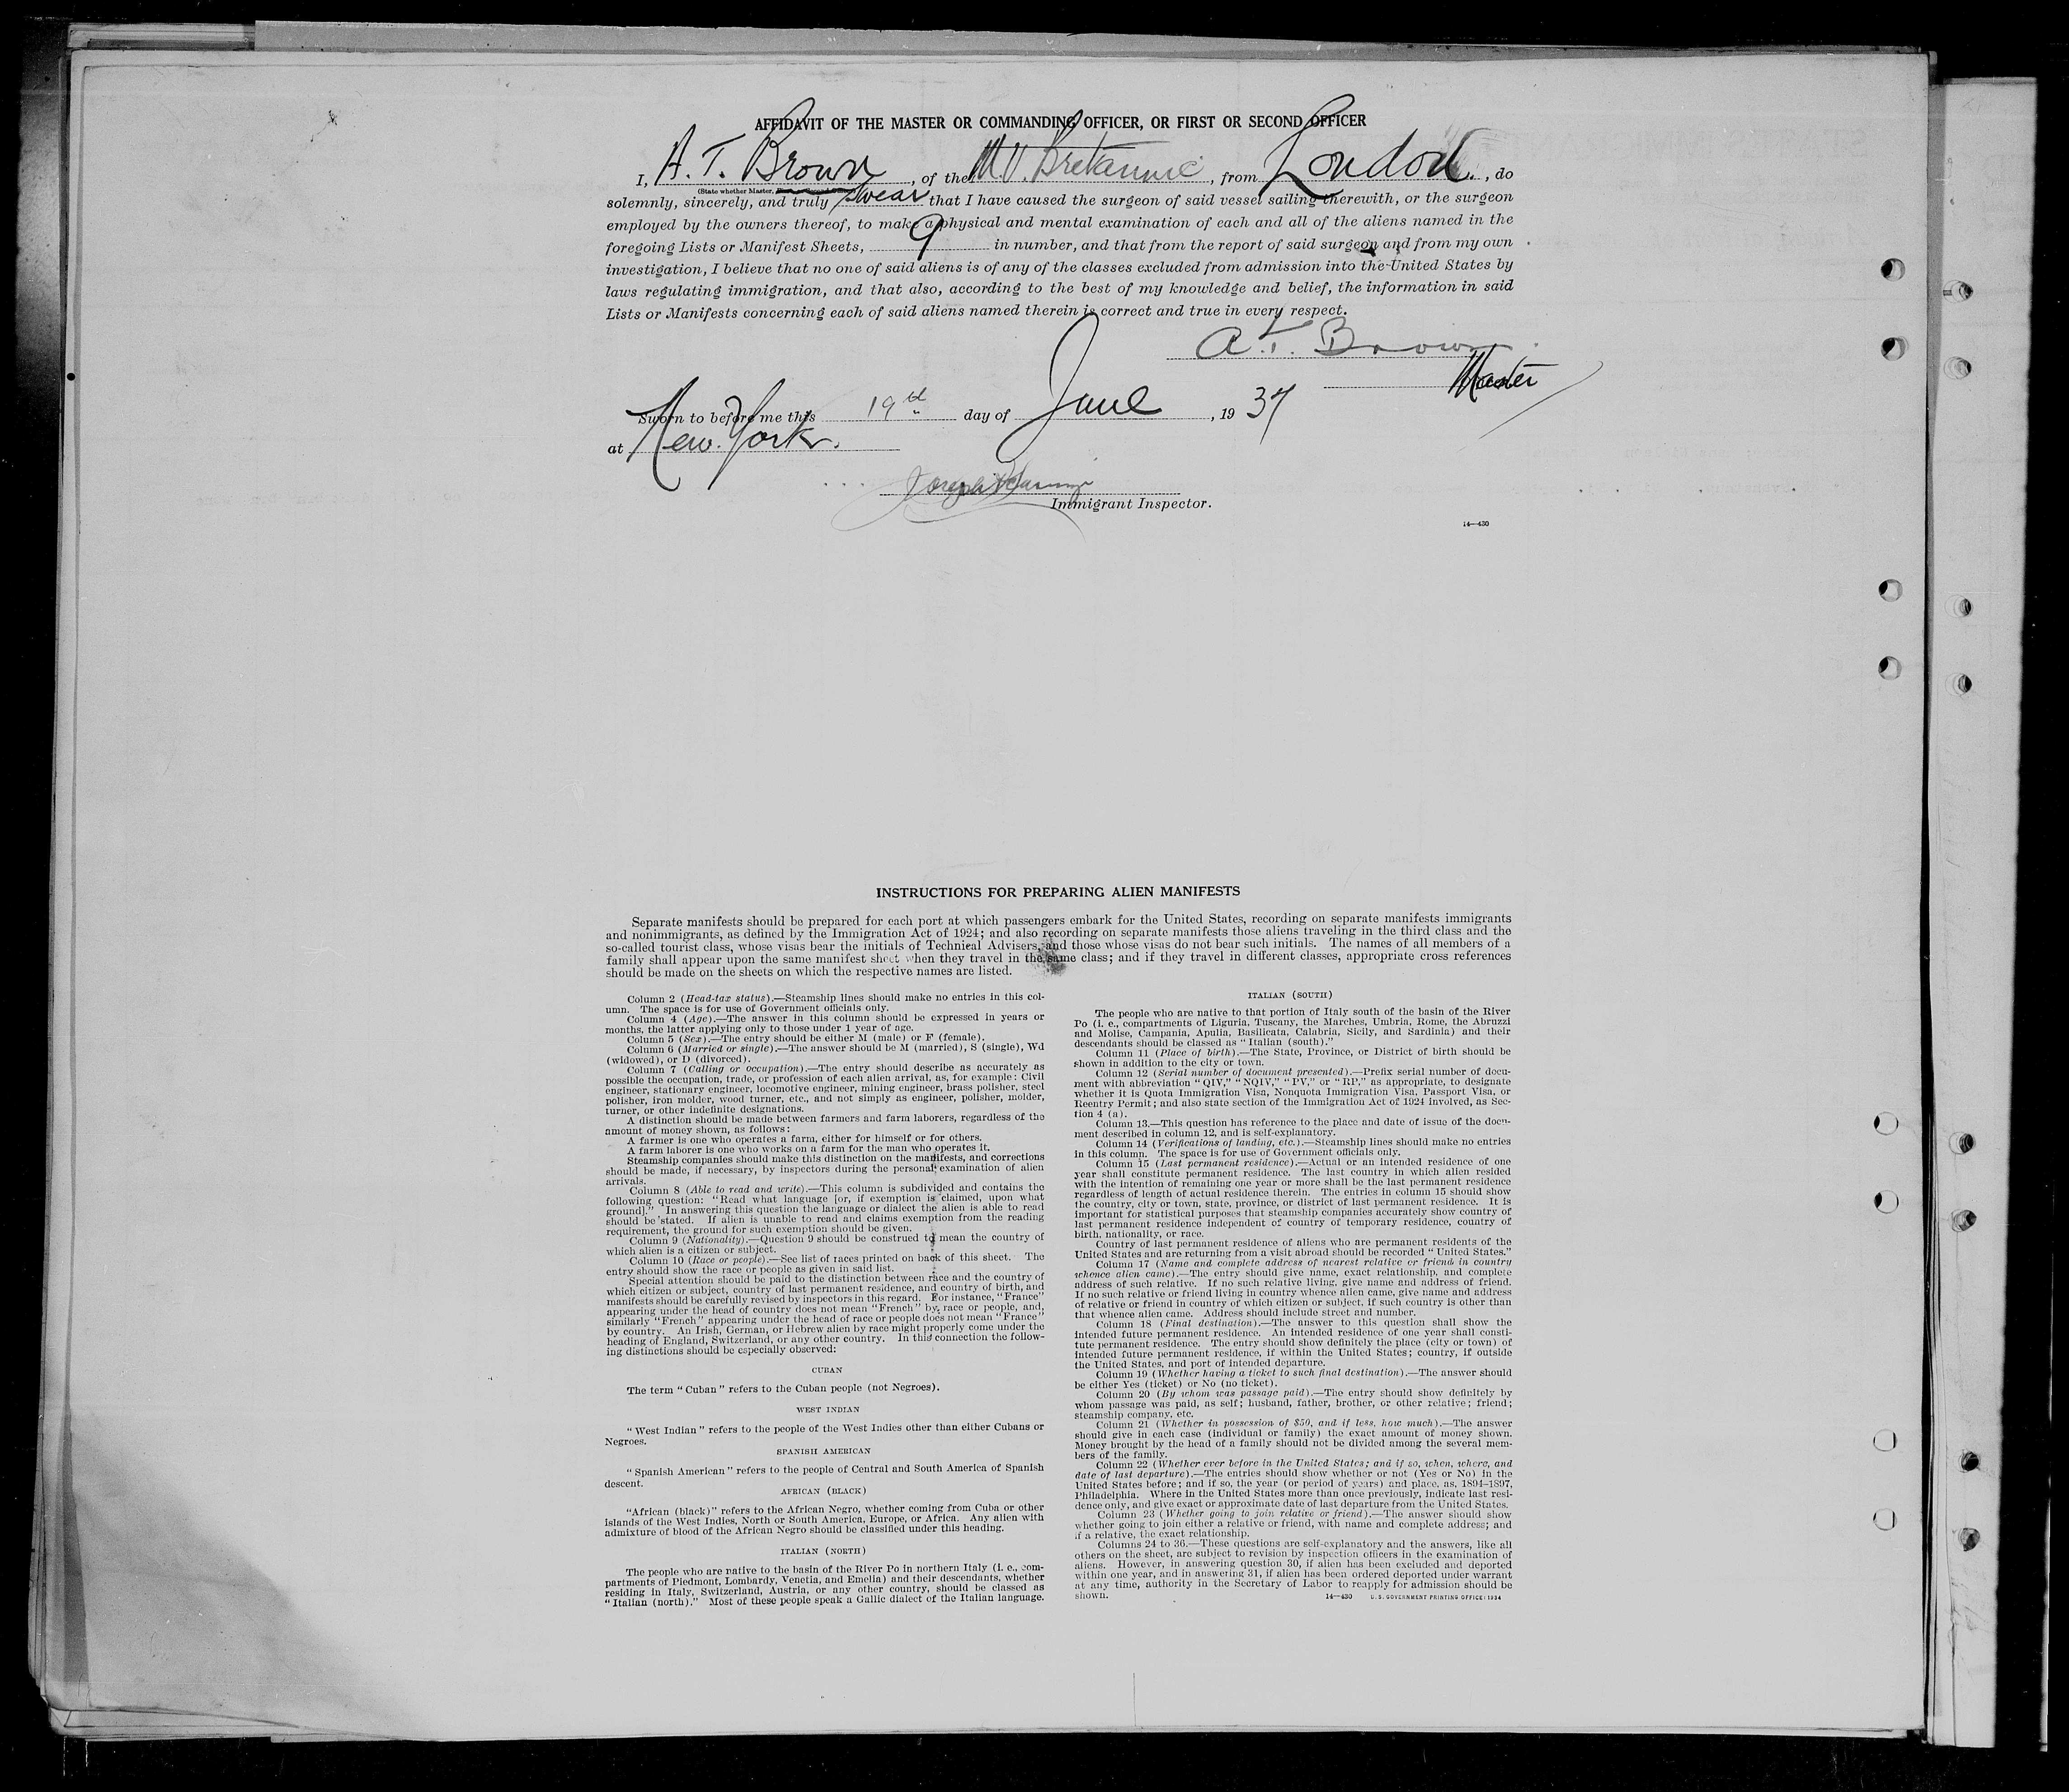 AFFIDAVIT OF THE MASTER OR COMMANDING OFFICER, OR FIRST OR SECOND OFFICER
I, A. T. Brown, of the M.V. Britannic, from London, do
(State whether Master,
solemnly, sincerely, and truly swear that I have caused the surgeon of said vessel sailing therewith, or the surgeon
employed by the owners thereof, to make a physical and mental examination of each and all of the aliens named in the
foregoing Lists or Manifest Sheets, 9 in number, and that from the report of said surgeon and from my own
investigation, I believe that no one of said aliens is of any of the classes excluded from admission into the United States by
laws regulating immigration, and that also, according to the best of my knowledge and belief, the information in said
Lists or Manifests concerning each of said aliens named therein is correct and true in every respect.
A. T. Brown
Master
Sworn to before me this 19th day of June, 1937
at New York.
Joseph
Immigrant Inspector.
14—430
INSTRUCTIONS FOR PREPARING ALIEN MANIFESTS
Separate manifests should be prepared for each port at which passengers embark for the United States, recording on separate manifests immigrants
and nonimmigrants, as defined by the Immigration Act of 1924; and also recording on separate manifests those aliens traveling in the third class and the
so-called tourist class, whose visas bear the initials of Technical Advisers, and those whose visas do not bear such initials. The names of all members of a
family shall appear upon the same manifest sheet when they travel in the same class; and if they travel in different classes, appropriate cross references
should be made on the sheets on which the respective names are listed.
Column 2 (Head-tax status).—Steamship lines should make no entries in this col-
umn. The space is for use of Government officials only.
Column 4 (Age).—The answer in this column should be expressed in years or
months, the latter applying only to those under 1 year of age.
Column 5 (Sex).—The entry should be either M (male) or F (female).
Column 6 (Married or single).—The answer should be M (married), S (single), Wd
(widowed), or D (divorced).
Column 7 (Calling or occupation).—The entry should describe as accurately as
possible the occupation, trade, or profession of each alien arrival, as, for example: Civil
engineer, stationary engineer, locomotive engineer, mining engineer, brass polisher, steel
polisher, iron molder, wood turner, etc., and not simply as engineer, polisher, molder,
turner, or other indefinite designations.
A distinction should be made between farmers and farm laborers, regardless of the
amount of money shown, as follows:
A farmer is one who operates a farm, either for himself or for others.
A farm laborer is one who works on a farm for the man who operates it.
Steamship companies should make this distinction on the manifests, and corrections
should be made, if necessary, by inspectors during the personal examination of alien
arrivals.
Column 8 (Able to read and write).—This column is subdivided and contains the
following question: "Read what language [or, if exemption is claimed, upon what
ground]." In answering this question the language or dialect the alien is able to read
should be stated. If alien is unable to read and claims exemption from the reading
requirement, the ground for such exemption should be given.
Column 9 (Nationality).—Question 9 should be construed to mean the country of
which alien is a citizen or subject.
Column 10 (Race or people).—See list of races printed on back of this sheet. The
entry should show the race or people as given in said list.
Special attention should be paid to the distinction between race and the country of
which citizen or subject, country of last permanent residence, and country of birth, and
manifests should be carefully revised by inspectors in this regard. For instance, "France"
appearing under the head of country does not mean "French" by race or people, and,
similarly "French" appearing under the head of race or people does not mean "France"
by country. An Irish, German, or Hebrew alien by race might properly come under the
heading of England, Switzerland, or any other country. In this connection the follow-
ing distinctions should be especially observed:
CUBAN
The term "Cuban" refers to the Cuban people (not Negroes).
WEST INDIAN
"West Indian" refers to the people of the West Indies other than either Cubans or
Negroes.
SPANISH AMERICAN
"Spanish American" refers to the people of Central and South America of Spanish
descent.
AFRICAN (BLACK)
"African (black)" refers to the African Negro, whether coming from Cuba or other
islands of the West Indies, North or South America, Europe, or Africa. Any alien with
admixture of blood of the African Negro should be classified under this heading.
ITALIAN (NORTH)
The people who are native to the basin of the River Po in northern Italy (i. e., com-
partments of Piedmont, Lombardy, Venetia, and Emelia) and their descendants, whether
residing in Italy, Switzerland, Austria, or any other country, should be classed as
"Italian (north)." Most of these people speak a Gallic dialect of the Italian language.
ITALIAN (SOUTH)
The people who are native to that portion of Italy south of the basin of the River
Po (i. e., compartments of Liguria, Tuscany, the Marches, Umbria, Rome, the Abruzzi
and Molise, Campania, Apulia, Basilicata, Calabria, Sicily, and Sardinia) and their
descendants should be classed as "Italian (south)."
Column 11 (Place of birth).—The State, Province, or District of birth should be
shown in addition to the city or town.
Column 12 (Serial number of document presented).—Prefix serial number of docu-
ment with abbreviation "QIV," "NQIV," "PV," or "RP," as appropriate, to designate
whether it is Quota Immigration Visa, Nonquota Immigration Visa, Passport Visa, or
Reentry Permit; and also state section of the Immigration Act of 1924 involved, as Sec-
tion 4 (a).
Column 13.—This question has reference to the place and date of issue of the docu-
ment described in column 12, and is self-explanatory.
Column 14 (Verifications of landing, etc.).—Steamship lines should make no entries
in this column. The space is for use of Government officials only.
Column 15 (Last permanent residence).—Actual or an intended residence of one
year shall constitute permanent residence. The last country in which alien resided
with the intention of remaining one year or more shall be the last permanent residence
regardless of length of actual residence therein. The entries in column 15 should show
the country, city or town, state, province, or district of last permanent residence. It is
important for statistical purposes that steamship companies accurately show country of
last permanent residence independent of country of temporary residence, country of
birth, nationality, or race.
Country of last permanent residence of aliens who are permanent residents of the
United States and are returning from a visit abroad should be recorded "United States."
Column 17 (Name and complete address of nearest relative or friend in country
whence alien came).—The entry should give name, exact relationship, and complete
address of such relative. If no such relative living, give name and address of friend.
If no such relative or friend living in country whence alien came, give name and address
of relative or friend in country of which citizen or subject, if such country is other than
that whence alien came. Address should include street and number.
Column 18 (Final destination).—The answer to this question shall show the
intended future permanent residence. An intended residence of one year shall consti-
tute permanent residence. The entry should show definitely the place (city or town) of
intended future permanent residence, if within the United States; country, if outside
the United States, and port of intended departure.
Column 19 (Whether having a ticket to such final destination).—The answer should
be either Yes (ticket) or No (no ticket).
Column 20 (By whom was passage paid).—The entry should show definitely by
whom passage was paid, as self; husband, father, brother, or other relative; friend;
steamship company, etc.
Column 21 (Whether in possession of $50, and if less, how much).—The answer
should give in each case (individual or family) the exact amount of money shown.
Money brought by the head of a family should not be divided among the several mem-
bers of the family.
Column 22 (Whether ever before in the United States; and if so, when, where, and
date of last departure).—The entries should show whether or not (Yes or No) in the
United States before; and if so, the year (or period of years) and place, as, 1894–1897,
Philadelphia. Where in the United States more than once previously, indicate last resi-
dence only, and give exact or approximate date of last departure from the United States.
Column 23 (Whether going to join relative or friend).—The answer should show
whether going to join either a relative or friend, with name and complete address; and
if a relative, the exact relationship.
Columns 24 to 36.—These questions are self-explanatory and the answers, like all
others on the sheet, are subject to revision by inspection officers in the examination of
aliens. However, in answering question 30, if alien has been excluded and deported
within one year, and in answering 31, if alien has been ordered deported under warrant
at any time, authority in the Secretary of Labor to reapply for admission should be
shown.
14—430 U. S. GOVERNMENT PRINTING OFFICE: 1934